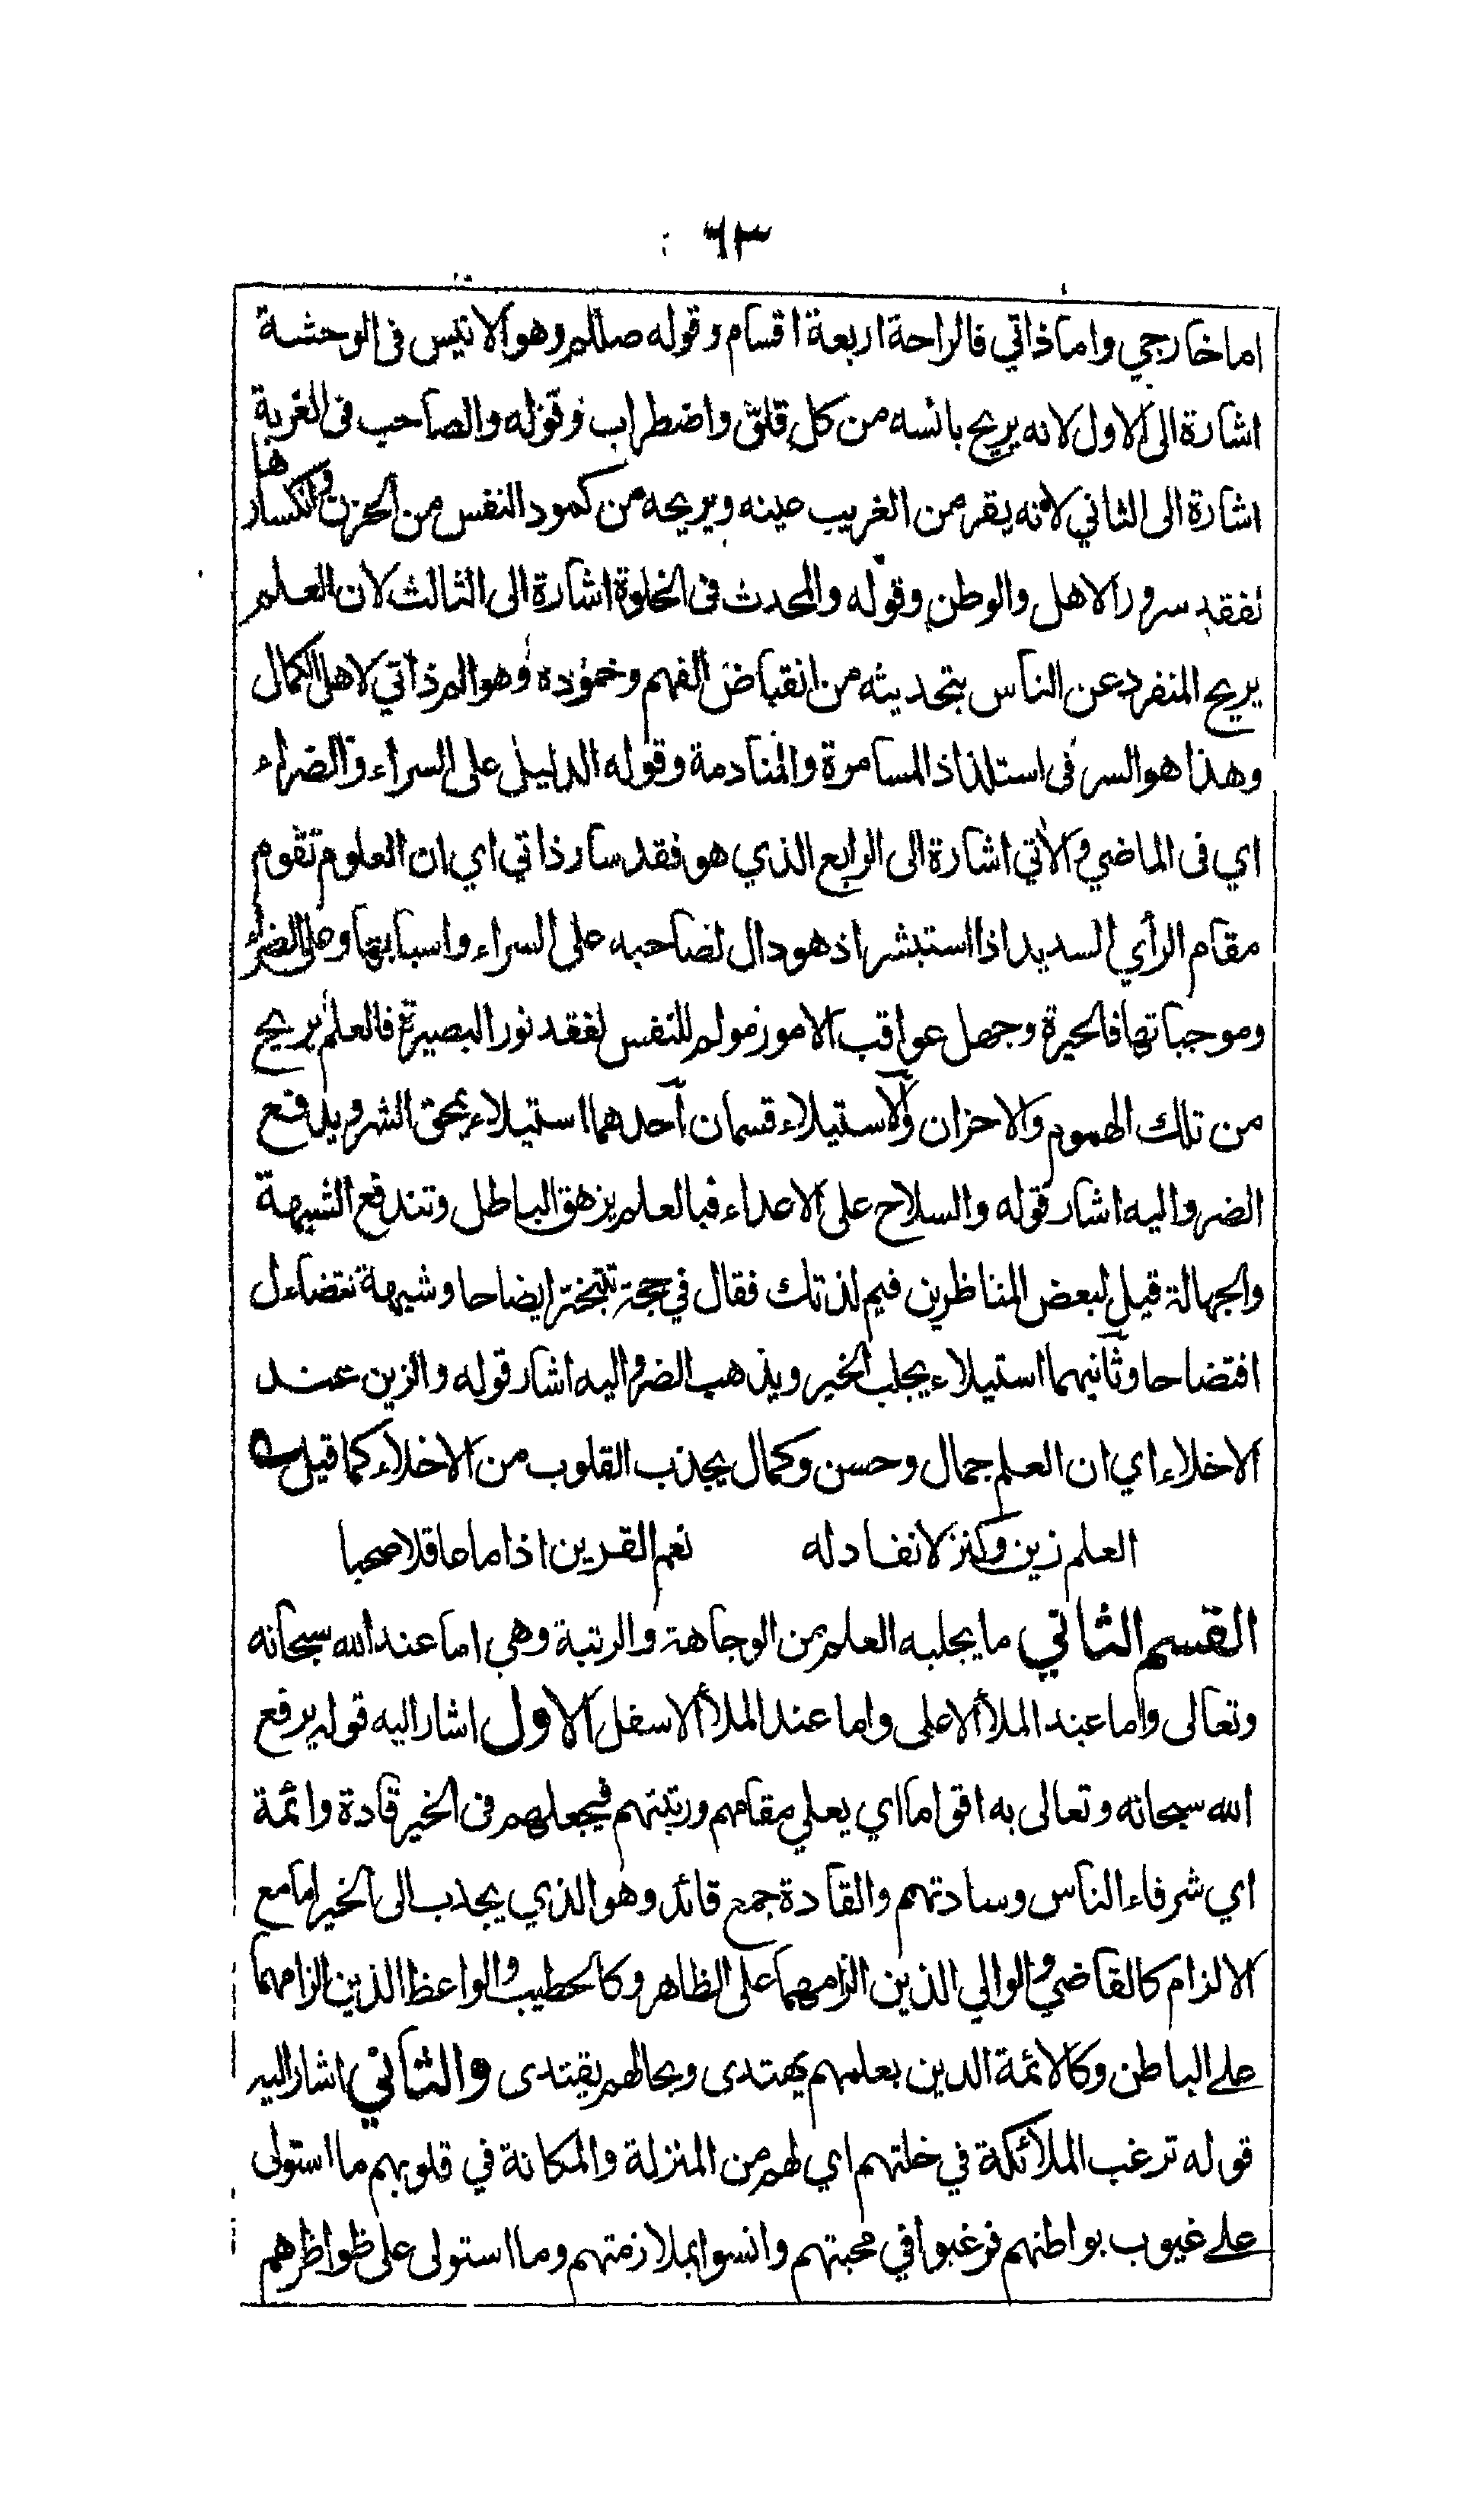 ٦٣
اما خارجي واما ذاتي فالراحة اربعة اقسام وقوله صللم وهو الانيس فى الوحشة
اشارة الى الاول لانه يريح بانسه من كل قلق واضطراب وقوله والصاحب فى الغربة
اشارة الى الثاني لانه يقر من الغريب عينه ويريحه من كمود النفس من الحزن وانكسارها
لفقد سرور الاهل والوطن وقوله والمحدث فى الخلوة اشارة الى الثالث لان العلم
يريح المنفرد عن الناس بتحديثه من انقباض الفهم وخموده وهو الم ذاتي لاهل الكمال
وهذا هو السر فى استلذاذ المسامرة والمنادمة وقوله الدليل على السراء والضراء
اي فى الماضي والاتي اشارة الى الرابع الذي هو فقد سار ذاتي اي ان العلوم تقوم
مقام الرأي السديد اذا استبشر اذ هو دال لصاحبه على السراء واسبابها وعلى الضراء
وموجباتها فالحيرة وجهل عواقب الامور مولم للنفس لفقد نور البصيرة فالعلم يريح
من تلك الهموم والاحزان والاستيلاء قسمان احدهما استيلاء يمحق الشر ويدفع
الضر واليه اشار قوله والسلاح على الاعداء فبالعلم يزهق الباطل وتندفع الشبهة
والجهالة قيل لبعض المناظرين فيم لذتك فقال في حجة تتبختر ايضاحا وشبهة تتضاءل
افتضاحا وثانيهما استيلاء يجلب الخير ويذهب الضر واليه اشار قوله والزين عند
الاخلاء اي ان العلم جمال وحسن وكمال يجذب القلوب من الاخلاء كما قيل
العلم زين وكنز لا نفاد له نعم القرين اذا ما عاقلا صحبا
القسم الثاني ما يجلبه العلم من الوجاهة والرتبة وهي اما عند الله سبحانه
وتعالى واما عند الملأ الاعلى واما عند الملأ الاسفل الاول اشار اليه قوله يرفع
الله سبحانه وتعالى به اقواما اي يعلي مقامهم ورتبتهم فيجعلهم فى الخير قادة وائمة
اي شرفاء الناس وسادتهم والقادة جمع قائد وهو الذي يجذب الى الخير اما مع
الالزام كالقاضي والوالي الذين الزامهما على الظاهر وكالخطيب والواعظ الذين الزامهما
على الباطن وكالائمة الدين بعلمهم يهتدى وبحالهم يقتدى والثاني اشار اليه
قوله ترغب الملائكة في خلتهم اي لهم من المنزلة والمكانة في قلوبهم ما استولى
على غيوب بواطنهم فرغبوا في محبتهم وانسوا بملازمتهم وما استولى على ظواظرهم